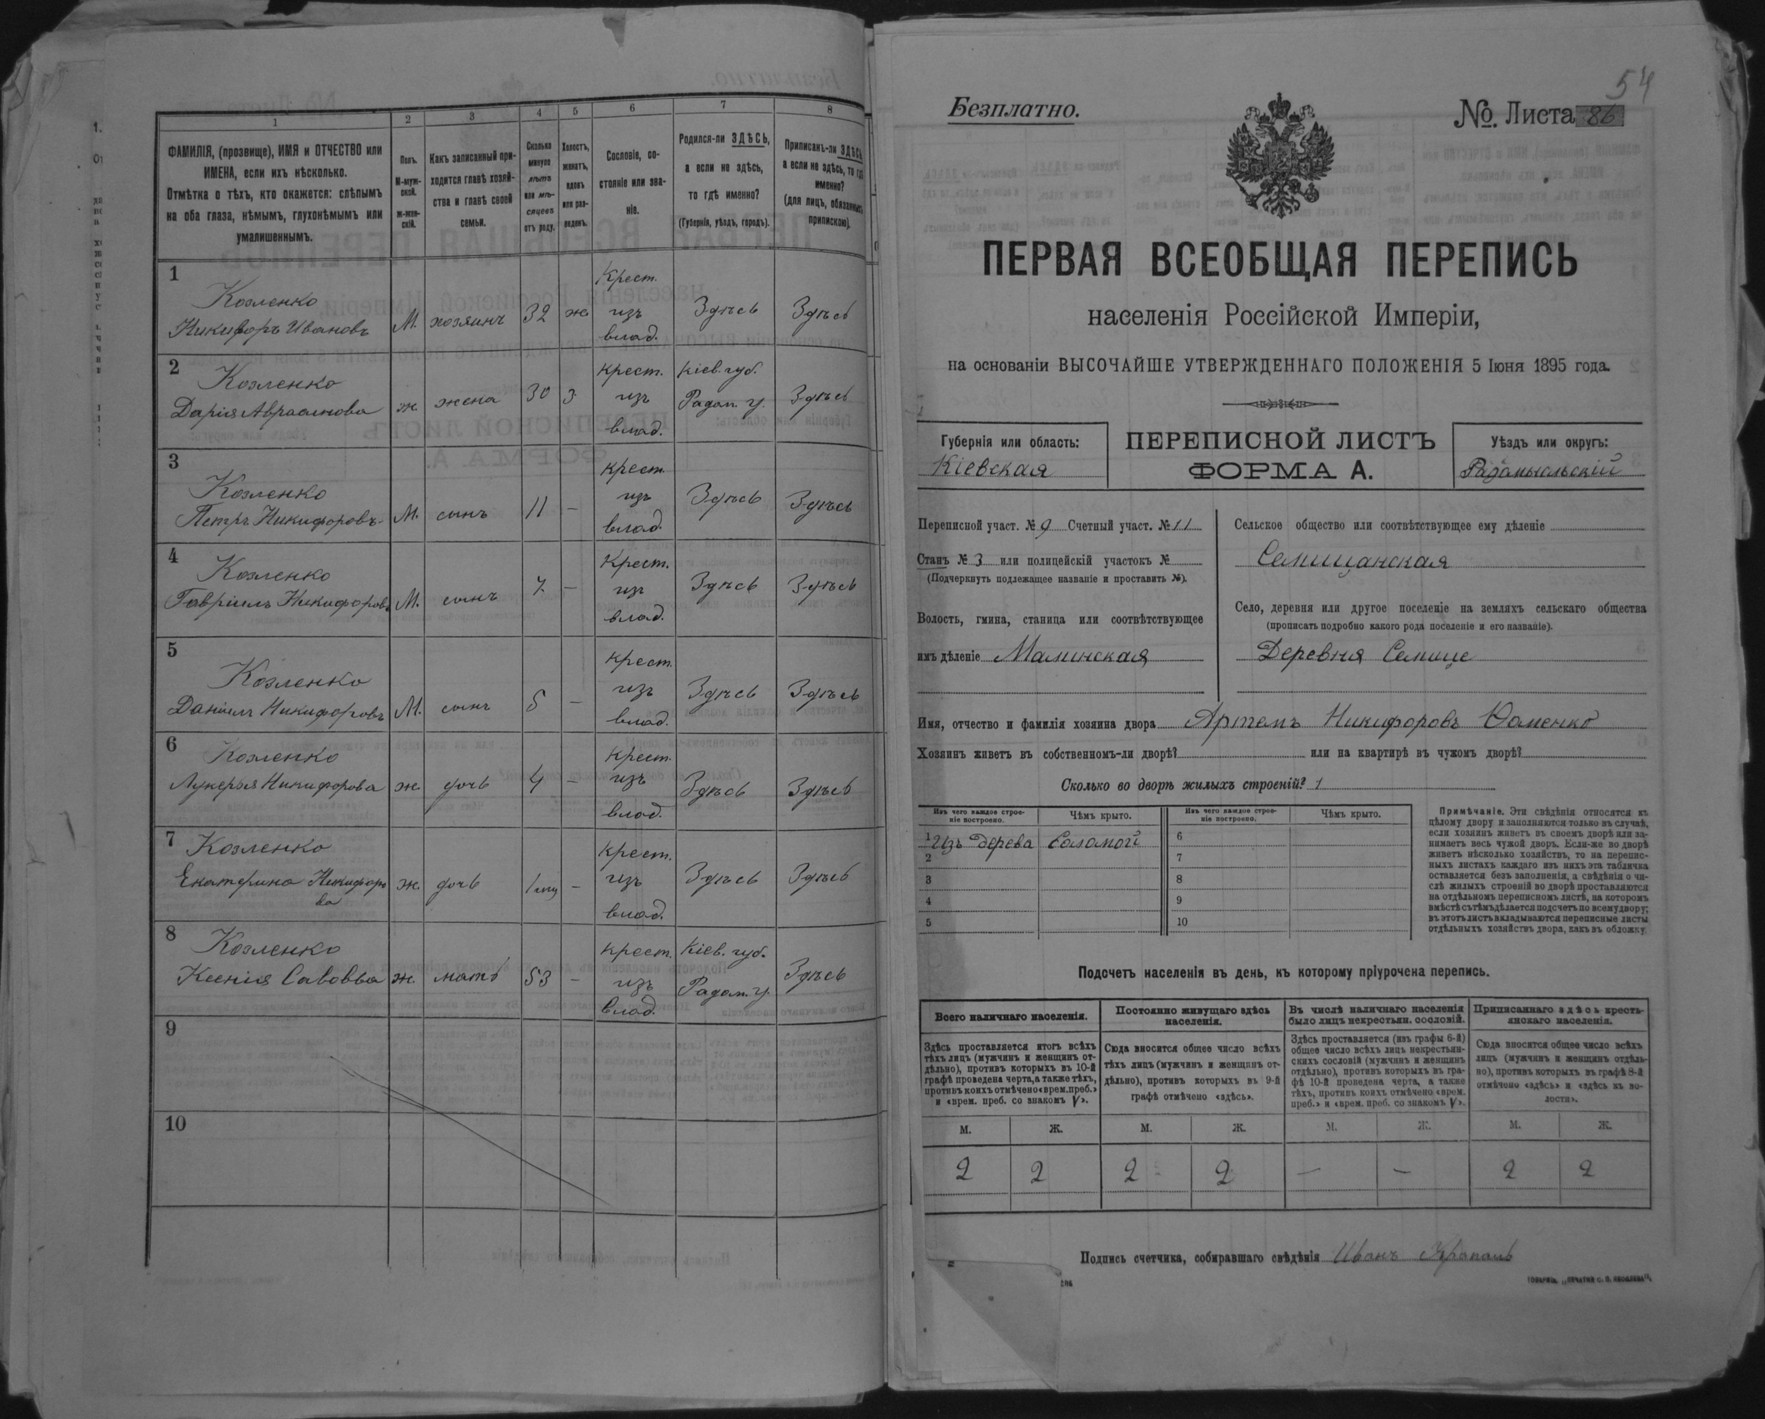 1
2
3
4
5
6
7
8
ФАМИЛІЯ, (прозвище), ИМЯ и ОТЧЕСТВО или
ИМЕНА, если ихъ нѣсколько.
Отмѣтка о тѣхъ, кто окажется: слѣпымъ
на оба глаза, нѣмымъ, глухонѣмымъ или
умалишеннымъ.
Полъ.
М-муж-
ской.
Ж-жен-
скій.
Какъ записанный при-
ходится главѣ хозяй-
ства и главѣ своей
семьи.
Сколько
минуло
лѣтъ
или мѣ-
сяцевъ
отъ роду.
Холостъ,
женатъ,
вдовъ
или раз-
веденъ.
Сословіе, со-
стояніе или зва-
ніе.
Родился-ли ЗДѢСЬ,
а если не здѣсь,
то гдѣ именно?
(Губернія, уѣздъ, городъ).
Приписанъ-ли ЗДѢСЬ,
а если не здѣсь, то гдѣ
именно?
(для лицъ, обязанныхъ
припискою).
1
Козленко
Никифоръ Ивановъ
М.
хозяинъ
32
ж
Крест.
изъ
влад.
Здѣсь
Здѣсь
2
Козленко
Дарія Авраамова
ж.
жена
30
з
крест.
изъ
влад.
Кіев. губ.
Радом. у.
Здѣсь
3
Козленко
Петръ Никифоровъ
М.
сынъ
11
–
крест.
изъ
влад.
Здѣсь
Здѣсь
4
Козленко
Гавріилъ Никифоровъ
М.
сынъ
7
–
Крест.
изъ
влад.
Здѣсь
Здѣсь
5
Козленко
Даніилъ Никифоровъ
М.
сынъ
5
–
крест.
изъ
влад.
Здѣсь
Здѣсь
6
Козленко
Лукерья Никифорова
ж.
дочь
4
–
крест.
изъ
влад.
Здѣсь
Здѣсь
7
Козленко
Екатерина Никифоро
ва
ж.
дочь
1 мц
–
крест.
изъ
влад.
Здѣсь
Здѣсь
8
Козленко
Ксенія Саввова
ж.
мать
53
–
крест.
изъ
влад.
Кіев. губ.
Радом. у.
Здѣсь
9
10
54
Безплатно.
№ Листа 86
ПЕРВАЯ ВСЕОБЩАЯ ПЕРЕПИСЬ
населенія Россійской Имперіи,
на основаніи ВЫСОЧАЙШЕ УТВЕРЖДЕННАГО ПОЛОЖЕНІЯ 5 Іюня 1895 года.
Губернія или область:
Кіевская
ПЕРЕПИСНОЙ ЛИСТЪ
ФОРМА А.
Уѣздъ или округъ:
Радомысльскій
Переписной участ. № 9 Счетный участ. № 11
Станъ № 3 или полицейскій участокъ №
(Подчеркнуть подлежащее названіе и проставить №).
Волость, гмина, станица или соотвѣтствующее
имъ дѣленіе Малинская
Сельское общество или соотвѣтствующее ему дѣленіе
Селищанская
Село, деревня или другое поселеніе на земляхъ сельскаго общества
(прописать подробно какого рода поселеніе и его названіе).
Деревня Селище
Имя, отчество и фамилія хозяина двора Артемъ Никифоровъ
Хозяинъ живетъ въ собственномъ-ли дворѣ? или на квартирѣ въ чужомъ дворѣ?
Сколько во дворѣ жилыхъ строеній? 1
Изъ чего каждое строе-
ніе построено.
Чѣмъ крыто.
Изъ чего каждое строе-
ніе построено.
Чѣмъ крыто.
1 Изъ дерева Соломой
2
3
4
5
6
7
8
9
10
Примѣчаніе. Эти свѣдѣнія относятся къ
цѣлому двору и заполняются только въ случаѣ,
если хозяинъ живетъ въ своемъ дворѣ или за-
нимаетъ весь чужой дворъ. Если-же во дворѣ
живетъ нѣсколько хозяйствъ, то на перепис-
ныхъ листахъ каждаго изъ нихъ эта табличка
оставляется безъ заполненія, а свѣдѣнія о чи-
слѣ жилыхъ строеній во дворѣ проставляются
на отдѣльномъ переписномъ листѣ, на которомъ
вмѣстѣ съ тѣмъ дѣлается подсчетъ по всему двору;
въ этотъ листъ вкладываются переписные листы
отдѣльныхъ хозяйствъ двора, какъ въ обложку.
Подсчетъ населенія въ день, къ которому пріурочена перепись.
Всего наличнаго населенія.
Постоянно живущаго здѣсь
населенія.
Въ числѣ наличнаго населенія
было лицъ некрестьян. сословій.
Приписаннаго здѣсь кресть-
янскаго населенія.
Здѣсь проставляется итогъ всѣхъ
тѣхъ лицъ (мужчинъ и женщинъ от-
дѣльно), противъ которыхъ въ 10-й
графѣ проведена черта, а также тѣхъ,
противъ коихъ отмѣчено «врем. преб.»
и «врем. преб. со знакомъ V».
Сюда вносится общее число всѣхъ
тѣхъ лицъ (мужчинъ и женщинъ от-
дѣльно), противъ которыхъ въ 9-й
графѣ отмѣчено «здѣсь».
Здѣсь проставляется (изъ графы 6-й)
общее число всѣхъ лицъ некрестьян-
скихъ сословій (мужчинъ и женщинъ
отдѣльно), противъ которыхъ въ гра-
фѣ 10-й проведена черта, а также
тѣхъ, противъ коихъ отмѣчено «врем.
преб.» и «врем. преб. со знакомъ V».
Сюда вносится общее число всѣхъ
лицъ (мужчинъ и женщинъ отдѣль-
но), противъ которыхъ въ графѣ 8-й
отмѣчено «здѣсь» и «здѣсь къ во-
лости».
М. Ж. М. Ж. М. Ж. М. Ж.
2 2 2 2 – – 2 2
Подпись счетчика, собиравшаго свѣдѣнія Иванъ